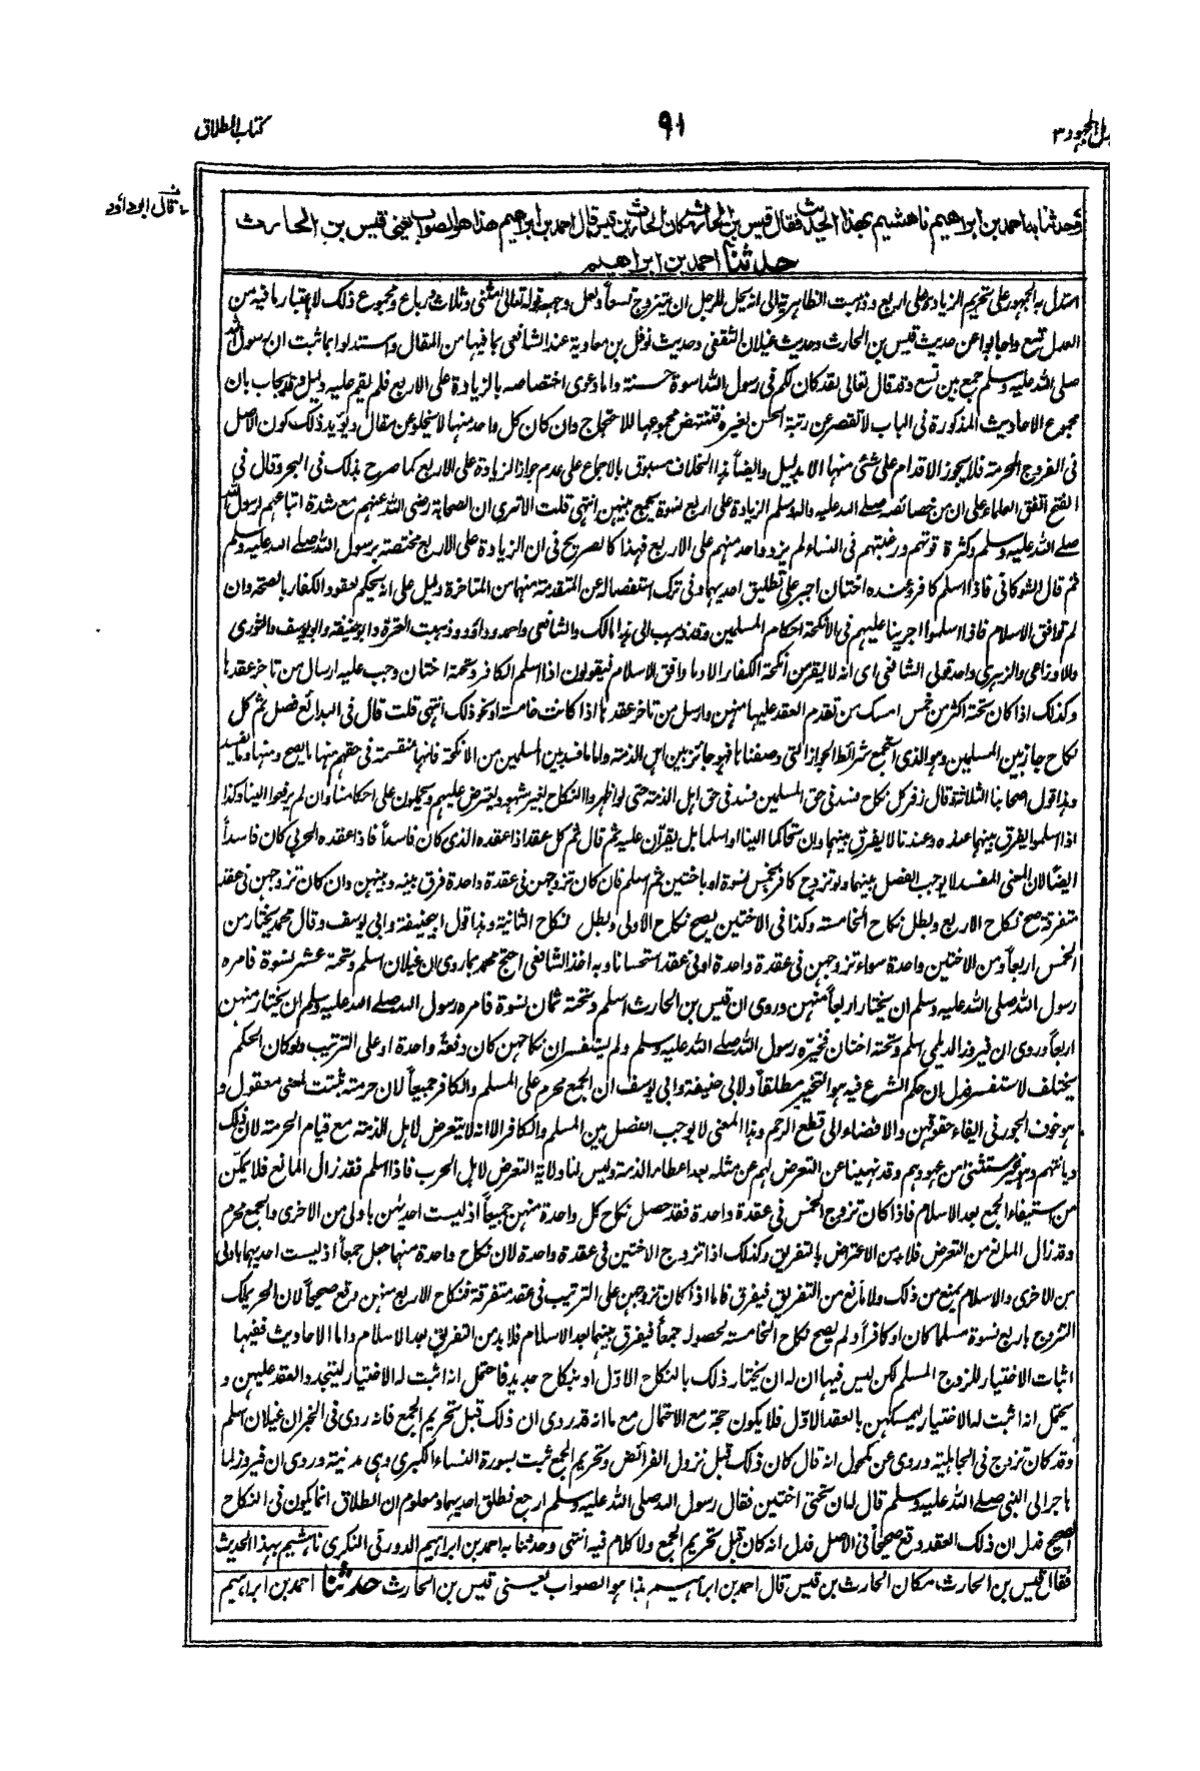 كتاب الطلاق ٩١ بذل المجهود ٣
قال ابوداؤد
وحدثنا به احمد بن ابراهيم نا هشيم بهذا الحديث فقال قيس بن الحارث مكان الحارث بن قيس قال احمد بن ابراهيم هذا هو الصواب يعني قيس بن الحارث
حدثنا احمد بن ابراهيم
استدل به الجمهور على تحريم الزيادة على اربع وذهبت الظاهرية الى انه يحل للرجل ان يتزوج تسعاً ولعل وجهه قوله تعالى مثنى وثلاث ورباع ومجموع ذلك لا باعتبار ما فيه من
العدل تسع واجابوا عن حديث قيس بن الحارث وحديث غيلان الثقفى وحديث نوفل بن معاوية عند الشافعى بما فيها من المقال واستدلوا بما ثبت ان رسول الله
صلى الله عليه وسلم جمع بين تسع وقد قال تعالى لقد كان لكم فى رسول الله اسوة حسنة واما دعوى اختصاصه بالزيادة على الاربع فلم يقم عليه دليل وقد يجاب بان
مجموع الاحاديث المذكورة فى الباب لا تقصر عن رتبة الحسن لغيره فتنتهض بمجموعها للاحتجاج وان كان كل واحد منها لا يخلو عن مقال ويؤيد ذلك كون الاصل
فى الفروج الحرمة فلا يجوز الاقدام على شئ منها الا بدليل وايضاً هذا الخلاف مسبوق بالاجماع على عدم جواز الزيادة على الاربع كما صرح بذلك فى البحر وقال فى
الفتح اتفق العلماء على ان من خصائصه صلى الله عليه واله وسلم الزيادة على اربع نسوة يجمع بينهن انتهى قلت الا ترى ان الصحابة رضى الله عنهم مع شدة اتباعهم لرسول الله
صلى الله عليه وسلم وكثرة قوتهم ورغبتهم فى النساء لم يزد واحد منهم على الاربع فهذا كالصريح فى ان الزيادة على الاربع مختصة برسول الله صلى الله عليه وسلم
ثم قال الشوكانى فاذا اسلم كافر وعنده اختان اجبر على تطليق احديهما وفى ترك استفصاله عن المتقدمة منهما من المتاخرة دليل على انه يحكم لعقود الكفار بالصحة وان
لم توافق الاسلام فاذا اسلموا اجرينا عليهم فى الانكحة احكام المسلمين وقد ذهب الى هذا مالك والشافعى واحمد وداؤد وذهبت العترة وابو حنيفة وابو يوسف والثورى
والاوزاعى والزهرى واحد قولى الشافعى اى انه لا يقر من انكحة الكفار الا ما وافق الاسلام فيقولون اذا اسلم الكافر وتحته اختان وجب عليه ارسال من تاخر عقدها
وكذلك اذا كان تحته اكثر من خمس امسك من تقدم العقد عليها منهن وارسل من تاخر عقدها اذا كانت خامسة او نحو ذلك انتهى قلت قال فى البدائع فصل ثم كل
نكاح جاز بين المسلمين وهو الذى استجمع شرائط الجواز التى وصفناها فهو جائز بين اهل الذمة واما ما فسد بين المسلمين من الانكحة فانها منقسمة فى حقهم منها ما يصح ومنها ما يفسد
وهذا قول اصحابنا الثلاثة قال زفر كل نكاح فسد فى حق المسلمين فسد فى حق اهل الذمة حتى لو اظهروا النكاح لغير شهود يعترض عليهم ويحملون على احكامنا وان لم يرفعوا الينا وكذا
اذا اسلموا يفرق بينهما عنده وعندنا لا يفرق بينهما وان تحاكما الينا او اسلما بل يقران عليه ثم قال ثم كل عقد اذا عقده الذى كان فاسداً فاذا عقده الحربى كان فاسداً
ايضاً لان المعنى المفسد لا يوجب الفصل بينهما ولو تزوج كافر بخمس نسوة او باختين ثم اسلم فان كان تزوجهن فى عقدة واحدة فرق بينه وبينهن وان كان تزوجهن فى عقد
متفرقة صح نكاح الاربع وبطل نكاح الخامسة وكذا فى الاختين يصح نكاح الاولى وبطل نكاح الثانية وهذا قول ابى حنيفة وابى يوسف وقال محمد يختار من
الخمس اربعاً ومن الاختين واحدة سواء تزوجهن فى عقدة واحدة او فى عقد استحسانا وبه اخذ الشافعى احتج محمد بما روى ان غيلان اسلم وتحته عشر نسوة فامره
رسول الله صلى الله عليه وسلم ان يختار اربعاً منهن وروى ان قيس بن الحارث اسلم وتحته ثمان نسوة فامره رسول الله صلى الله عليه وسلم ان يختار منهن
اربعاً وروى ان فيروز الديلمى اسلم وتحته اختان فخيره رسول الله صلى الله عليه وسلم ولم يستفسر ان نكاحهن كان دفعة واحدة او على الترتيب ولو كان الحكم
يختلف لاستفسر فدل ان حكم الشرع فيه هو التخيير مطلقاً ولابى حنيفة وابى يوسف ان الجمع محرم على المسلم والكافر جميعاً لان حرمته ثبتت لمعنى معقول و
هو خوف الجور فى ايفاء حقوقهن والافضاء الى قطع الرحم وهذا المعنى لا يوجب الفصل بين المسلم والكافر الا انه لا يتعرض لاهل الذمة مع قيام الحرمة لان ذلك
ديانتهم وهو غير مستثنى من عهودهم وقد نهينا عن التعرض لهم عن مثله بعد اعطاء الذمة وليس لنا ولاية التعرض لاهل الحرب فاذا اسلم فقد زال المانع فلا يمكن
من استيفاء الجمع بعد الاسلام فاذا كان تزوج الخمس فى عقدة واحدة فقد حصل نكاح كل واحدة منهن جميعاً اذ ليست احدهن باولى من الاخرى والجمع محرم
وقد زال المانع من التعرض فلا بد من الاعتراض بالتفريق وكذلك اذا تزوج الاختين فى عقدة واحدة لان نكاح واحدة منهما حصل جمعاً اذ ليست احديهما باولى
من الاخرى والاسلام يمنع من ذلك ولا مانع من التفريق فيفرق فاما اذا كان تزوجهن على الترتيب فى عقد متفرقة فنكاح الاربع منهن وقع صحيحاً لان الحر يملك
التزوج باربع نسوة مسلما كان او كافراً ولم يصح نكاح الخامسة لحصوله جمعاً فيفرق بينهما بعد الاسلام فلا بد من التفريق بعد الاسلام واما الاحاديث ففيها
اثبات الاختيار للزوج المسلم لكن ليس فيها ان له ان يختار ذلك بالنكاح الاول او بنكاح جديد فاحتمل انه اثبت له الاختيار ليتجدد العقد عليهن و
يحتمل انه اثبت له الاختيار ليمسكهن بالعقد الاول فلا يكون حجة مع الاحتمال مع ما انه قد روى ان ذلك قبل تحريم الجمع فانه روى فى الخبر ان غيلان اسلم
وقد كان تزوج فى الجاهلية وروى عن مكحول انه قال كان ذلك قبل نزول الفرائض وتحريم الجمع ثبت بسورة النساء الكبرى وهى مدنية وروى ان فيروز لما
هاجر الى النبى صلى الله عليه وسلم قال له ان تحتى اختين فقال رسول الله صلى الله عليه وسلم ارجع فطلق احديهما ومعلوم ان الطلاق انما يكون فى النكاح
الصحيح فدل ان ذلك العقد وقع صحيحاً فى الاصل فدل انه كان قبل تحريم الجمع ولا كلام فيه انتهى وحدثنا به احمد بن ابراهيم الدورقى النكرى نا هشيم بهذا الحديث
فقال قيس بن الحارث مكان الحارث بن قيس قال احمد بن ابراهيم هذا هو الصواب يعنى قيس بن الحارث حدثنا احمد بن ابراهيم